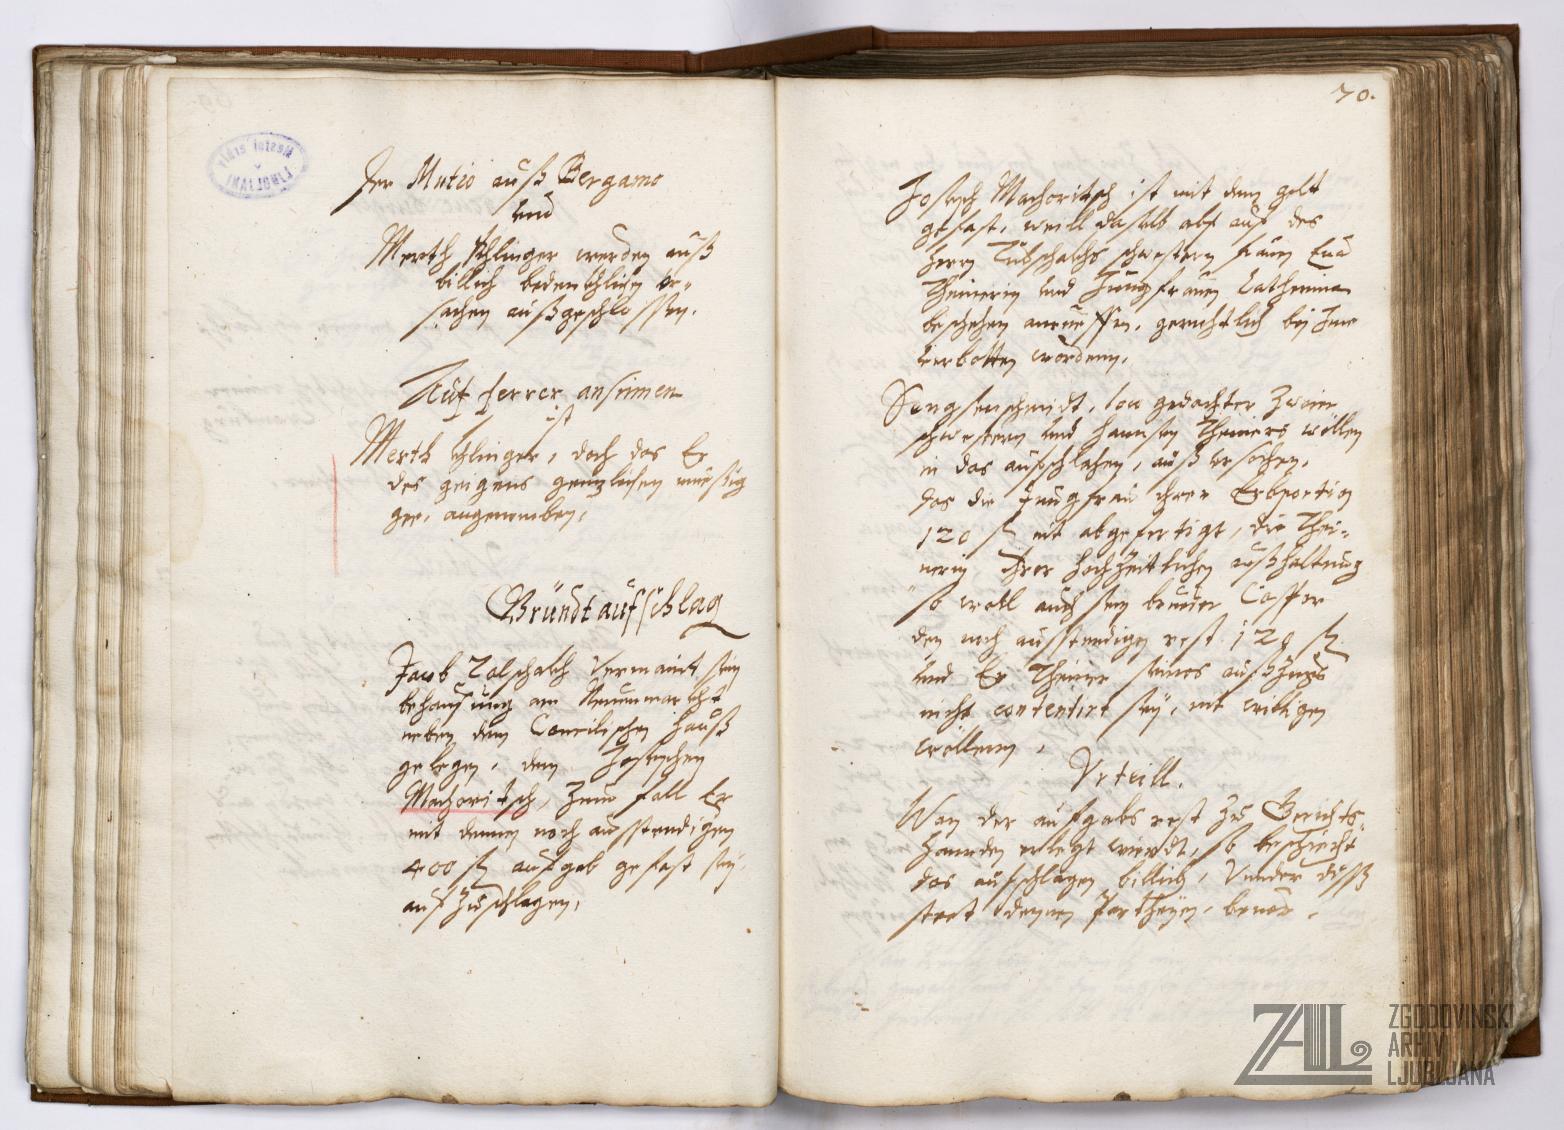 Jer Mutio auß Bergamo
und
Merth Khlinger werden auß
billich bedenkhlichen Ur-
sachen außgeschlossen.
Auf ferrer ansinnen
ist
Merth Khlinger, doch das Er
des geigens genzlichen müessig
gee, angenomben.
Gründt aufschlag
Jacob Tolschalch vermaint sein
behausung am Neuenmarckht
neben dem Comilischen hauß
gelegen, dem Josephen
Machoritsch, zum fall Er
mit denen noch ausstendigen
400 fl aufgab gefast sey,
aufzuschlagen.
70.
Joseph Machoritsch ist mit dem gelt
gefast, weill dasselb aber auf des
herrn Tulschalchs schwestern frauen Eua
Theinerin und Jungfrauen Catherina
beschehen anrueffen, gerichtlich bey Ime
verbotten worden.
Sengsenschmidt, von gedachter zwoier
schwestern und Hannsen Theiners wöllen
in das aufschlahen, auß ursachen,
das die Jungfrau ihrer Erbportion
120 fl nit abgefertigt, die Thei-
nerin Ihrer hochzeitlichen außhaltung
so woll auch sein brueder Casper
den noch ausstendigen rest 120 fl
und Er Theiner seines außzugs
nicht contentirt sey, nit willigen
wöllen.
Urtaill.
Wan der aufgabs rest zu Gerichts-
handen erlegt wierdt, so beschiecht
das aufschlagen billich, Under diss
steet denen Partheyen beuor.
MESTNI ARHIV
V
LJUBLJANI
ZAL
ZGODOVINSKI
ARHIV
LJUBLJANA